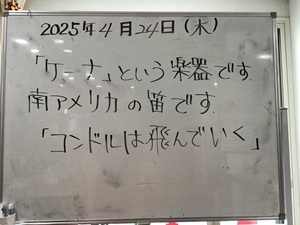 2025年4月24日(木)
「ケーナ」という楽器です
南アメリカの笛です
「コンドルは飛んでいく」